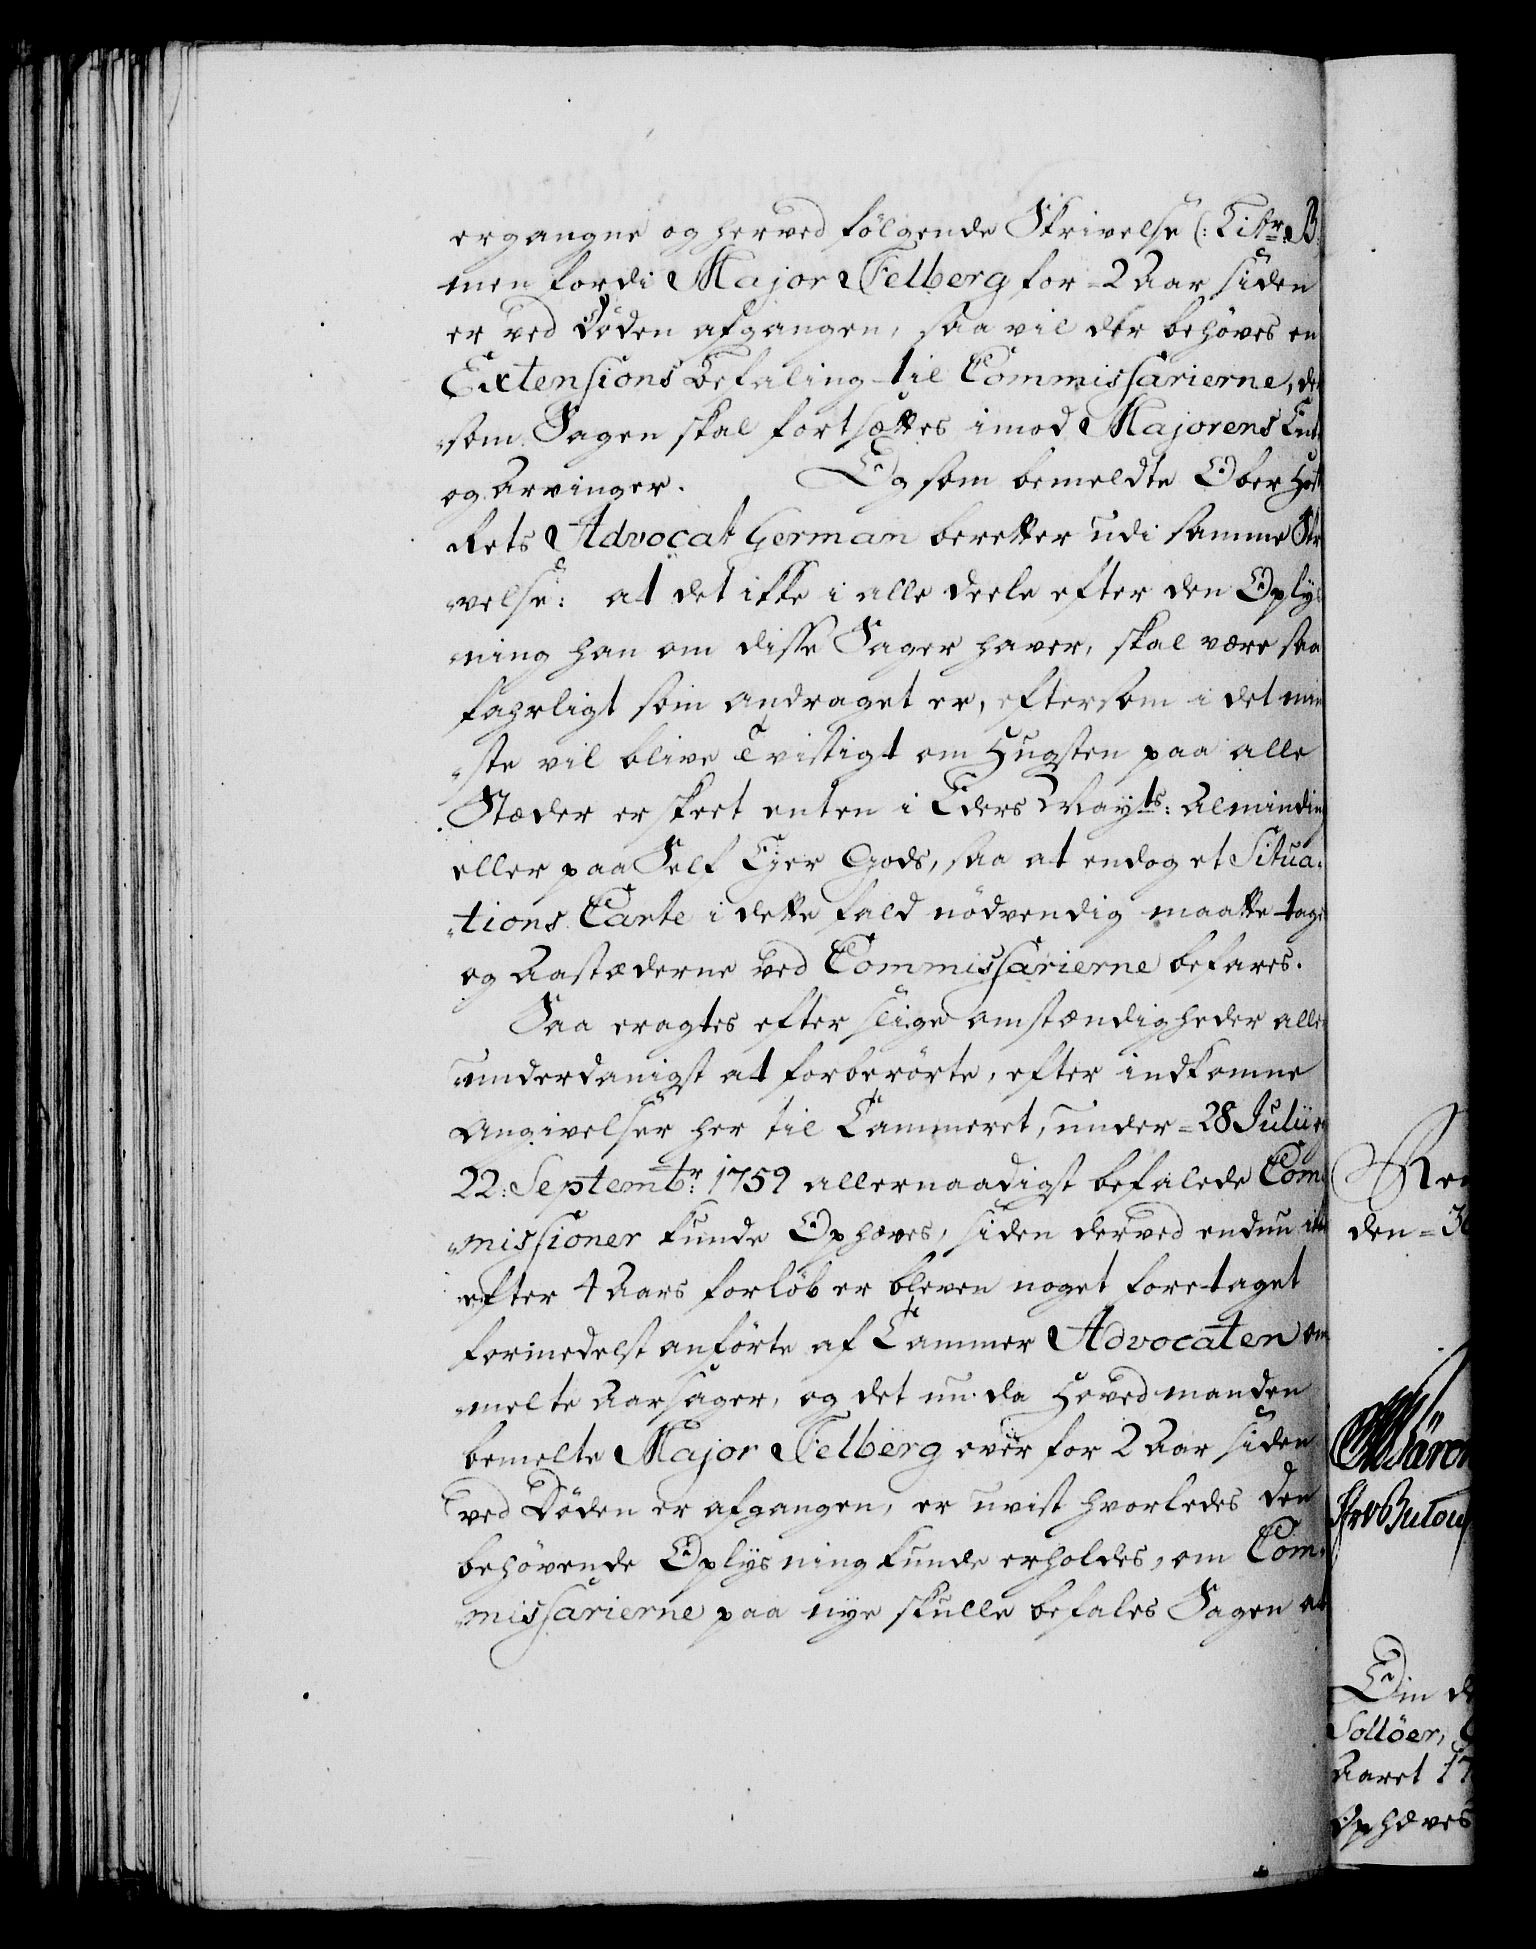 ergangne og herved følgende Skrivelse (: Litr: B:
men fordi Major Felberg for = 2 Aar siden
er ved Døden afgangen, saa vil der behøves en
Extensions Befaling til Commissarierne, der
som Sagen skal fortsættes imod Majorens
og Arvinger. Og som bemeldte Ober Hof
Rets Advocat German beretter udi samme Skri
velse: at det ikke i alle deele efter den Oplys
ning han om disse Sager haver, skal være saa
fahrligt som andraget er, eftersom i det min
ste vil blive tvistigt om Hugsten paa alle
Stæder er skeet enten i Eders Mayts: Alminding
eller paa Self Ejer Gods, saa at endog et Situa:
tions Carte i dette fald nødvendig maatte tages
og Aastæderne ved Commissarierne befares.
Saa eragtes efter slige omstændigheder aller
underdanigst at forberørte, efter indkomne
Angivelser her til Cammeret, under = 28 Julii og
22: Septembr: 1759 allernaadigst befalede Com:
missioner kunde Ophæves, siden derved endnu ikke
efter 4 Aars forløb er bleven noget foretaget
formedelst anførte af Cammer Advocaten om
melte Aarsager, og det nu da Hovedmanden
bemelte Major Felberg over for 2 Aar siden
ved Døden er afgangen, er uvist hvorledes den
behøvende Oplysning kunde erholdes, om Com:
missarierne paa nye skulle befales Sagen at
den = 30
Soelöer,
Aaret 17
Ophæves